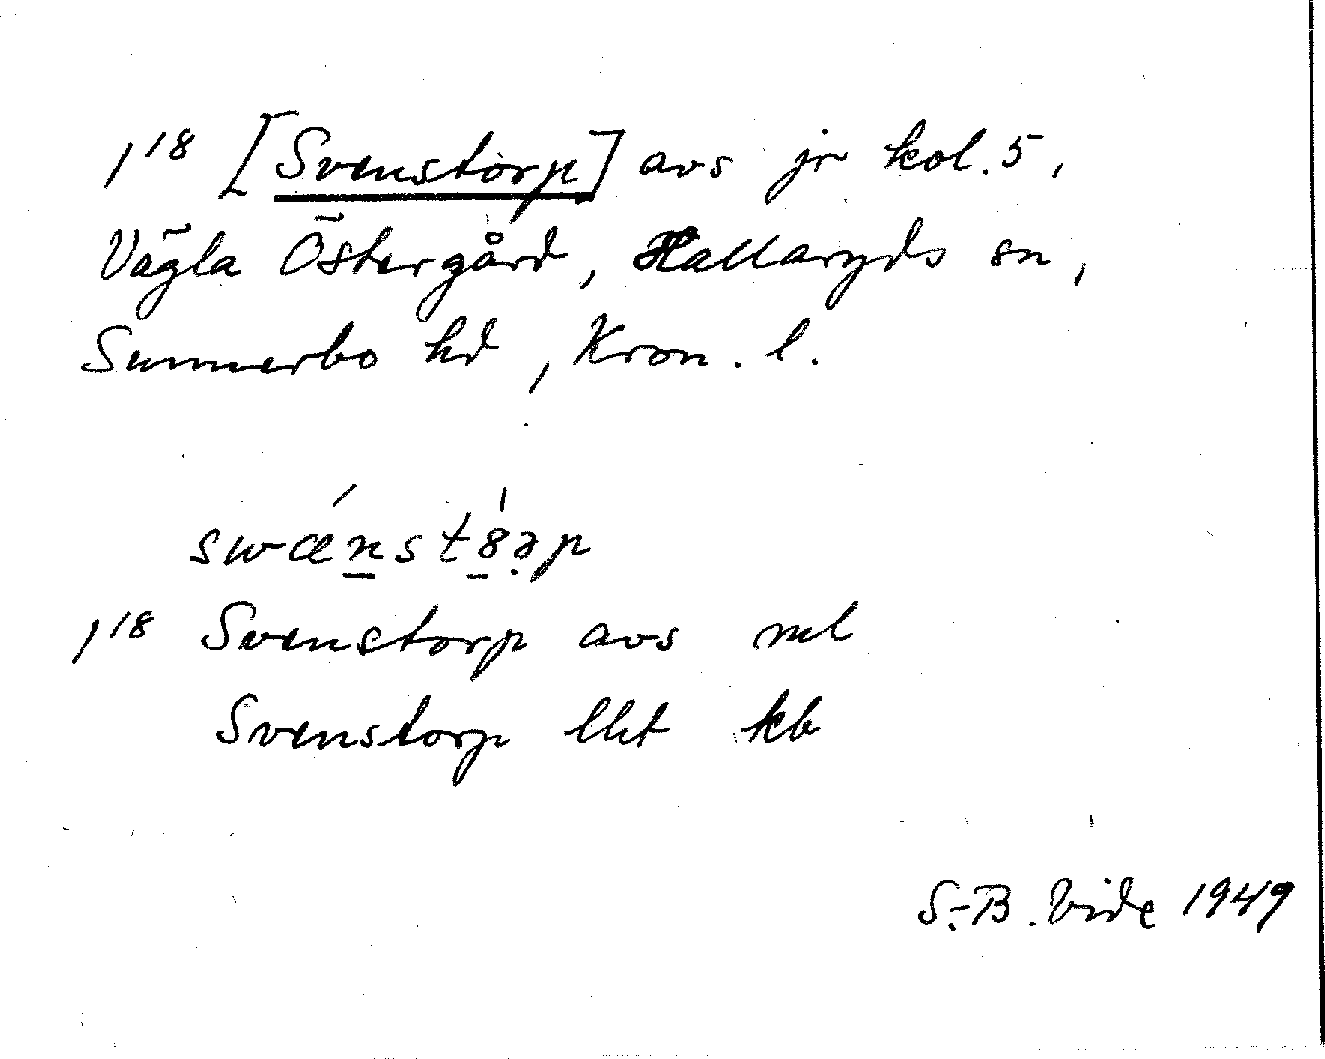 1¹⁸ [Svenstorp] avs jr kol. 5,
Vägla Östergård, Hallaryds sn,
Sunnerbo hd, Kron. l.
swǽn̲st8̲̍ə̣p
1¹⁸ Svenstorp avs ml
Svenstorp lht kb
S.-B. Vide 1949